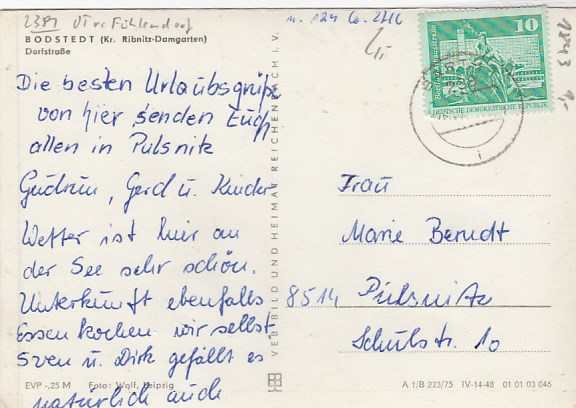 2381 üT ü Fuhlendorf
BODSTEDT (Kr. Ribnitz-Damgarten)
Dorfstraße
Die besten Urlaubsgrüße
von hier senden Euch
allen in Pulsnitz
Gudrun, Gerd u. Kinder
Wetter ist hier an
der See sehr schön.
Unterkunft ebenfalls
Essen kochen wir selbst
Sven u. Dirk gefällt es
natürlich auch
EVP -,25 M Foto: Wolf, Leipzig
VEB BILD UND HEIMAT REICHENBACH I. V.
10
DEUTSCHE DEMOKRATISCHE REPUBLIK
Frau
Marie Berndt
8514 Pulsnitz
Schulstr. 10
A 1/B 223/75 IV-14-48 01 01 03 046